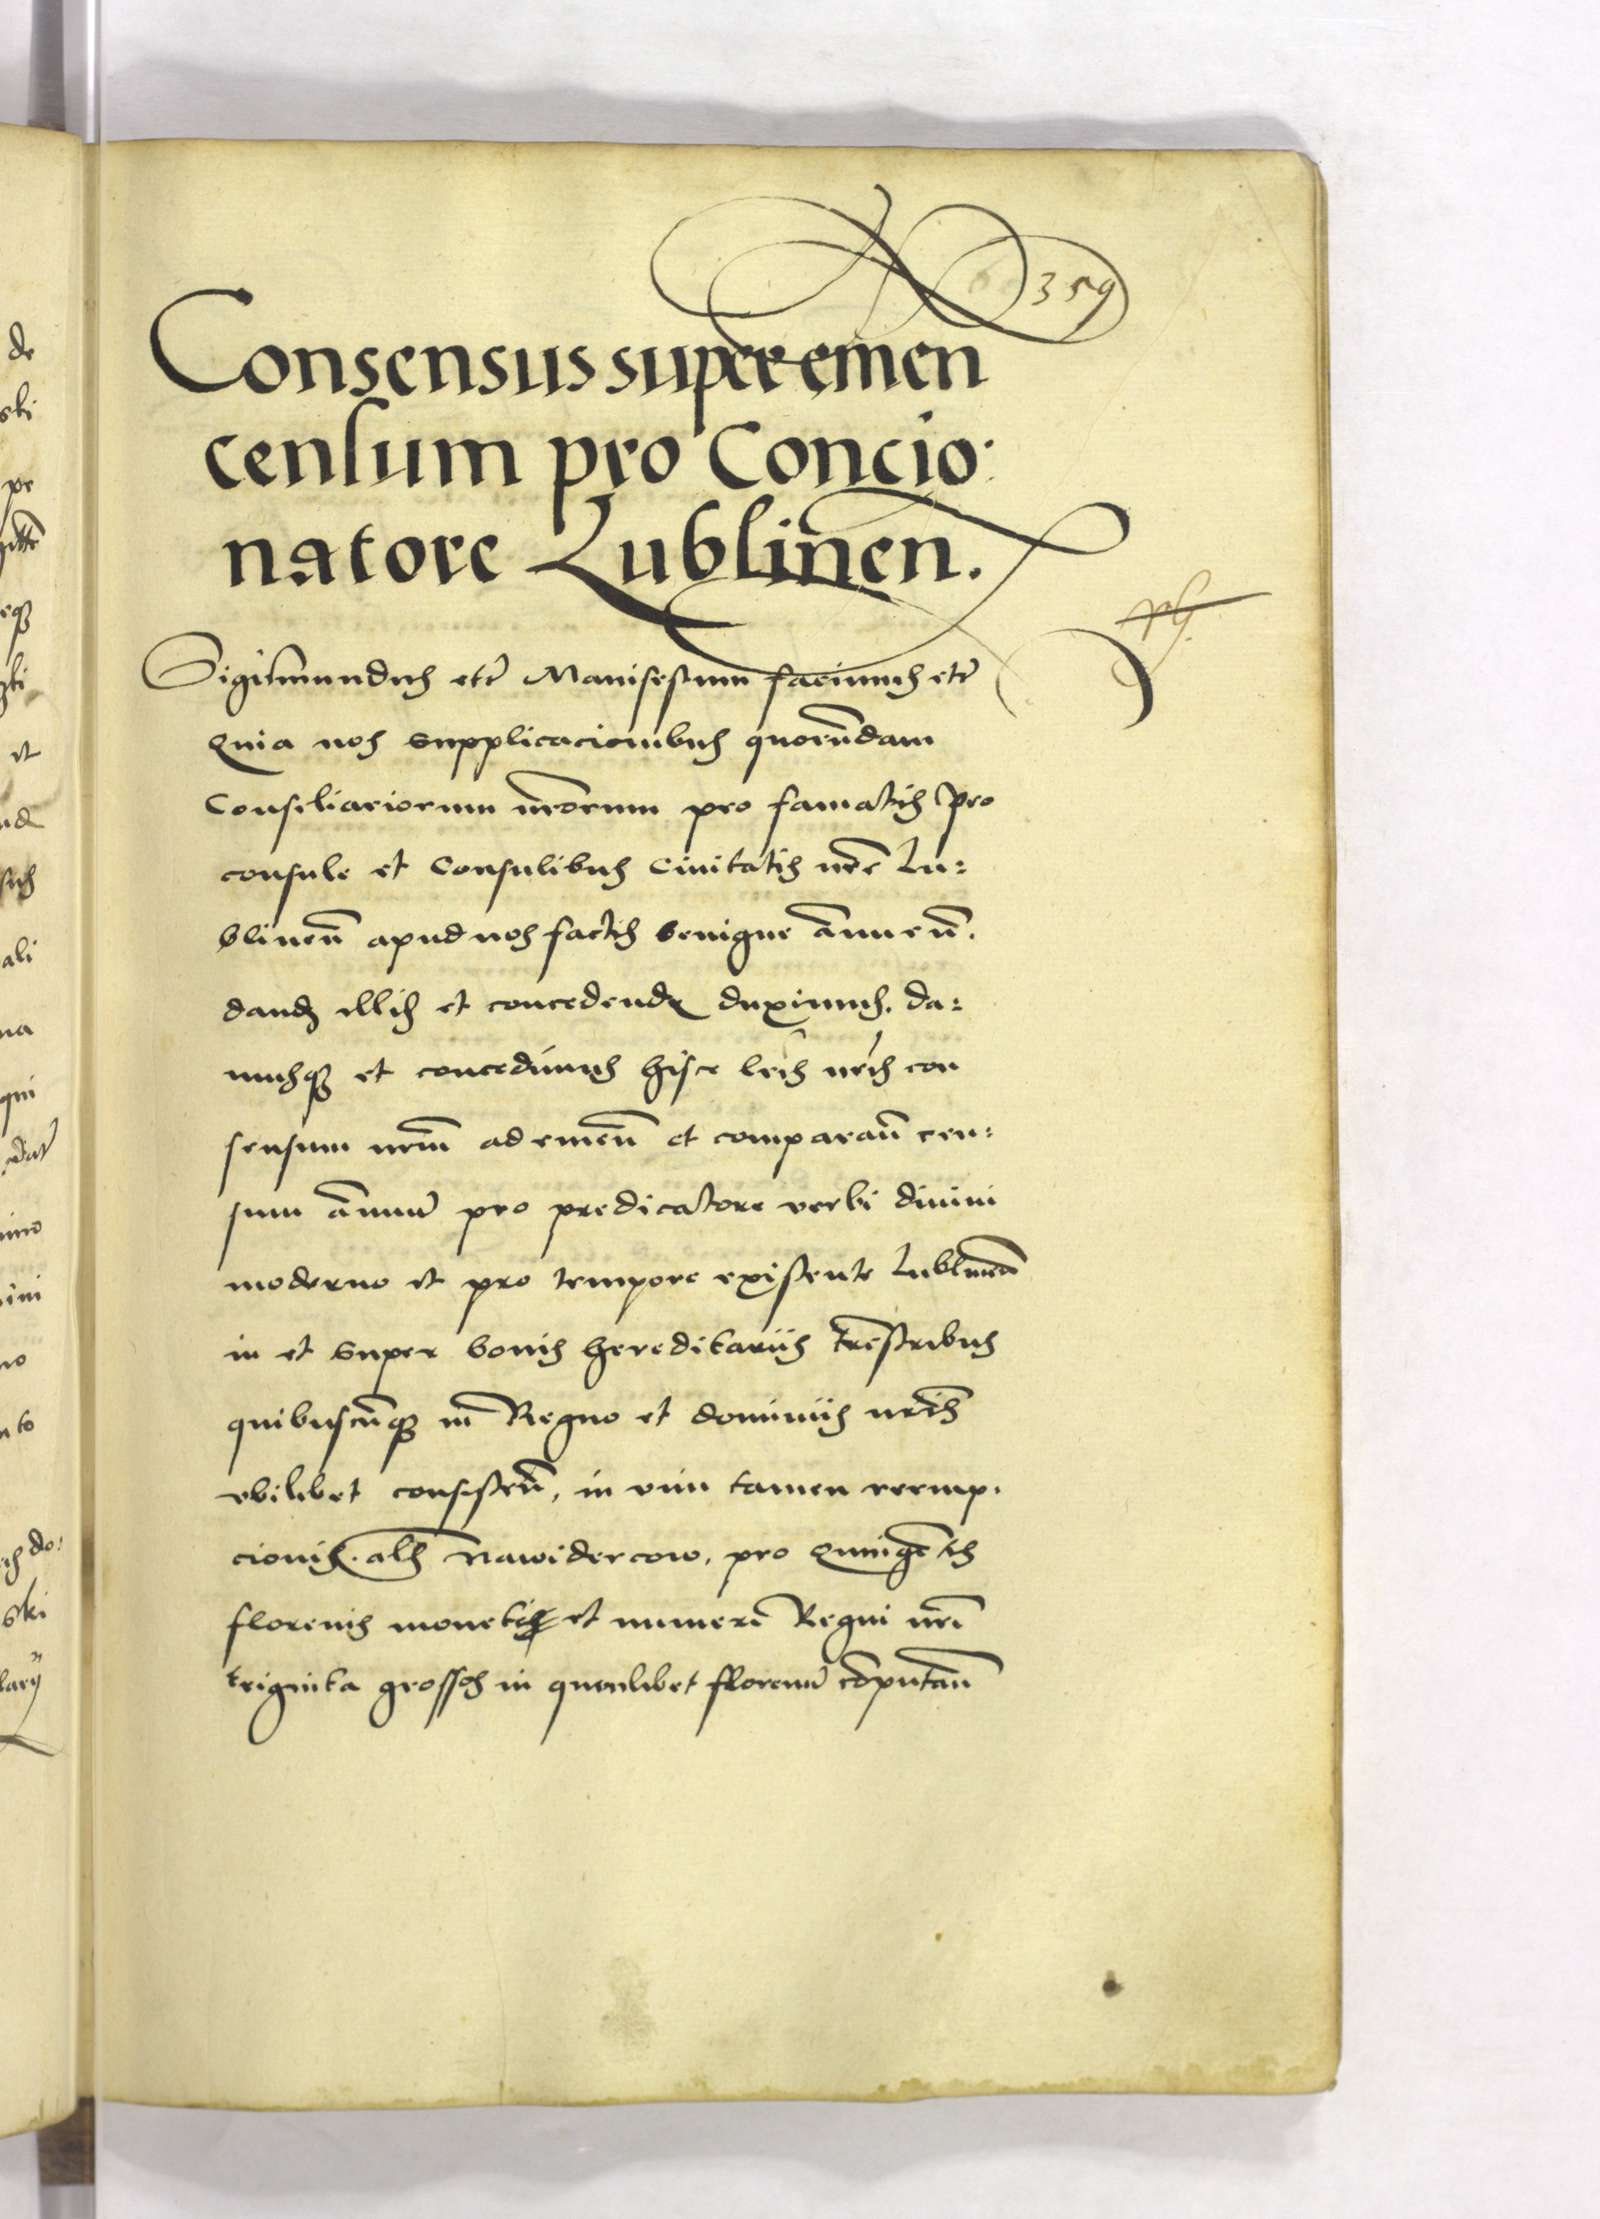 359
Consensus super emen
censum pro Concio:
natore Lublinen.
Sigismundus etc̃ Manifestum facimus etc̃
Quia nos supplicacionibus quorũdam
Consiliariorum nr̃orum pro famatis Pro
consule et Consulibus Ciuitatis nr̃e Lu:
blineñ apud nos factis benigne ãnnueñ.
dandũ illis et concedendũ duximus. da:
musq3 et concedimus hisce lr̃is nr̃is con
sensum nr̃m ad emeñ et comparañ cen:
sum ãnnuũ pro predicatore verbi diuini
moderno et pro tempore existente Lublineñ
in et super bonis hereditariis tr̃estribus
quibuscũq3 in Regno et dominiis nr̃is
vbilibet consisteñ, in vim tamen reemp.
cionis. als̃ nawidercow, pro quingẽtis
florenis monete et numeri Regni nr̃i
triginta grossos in quemlibet florenũ cõputañ
de
ski
pe
et
ali
na
qui
to